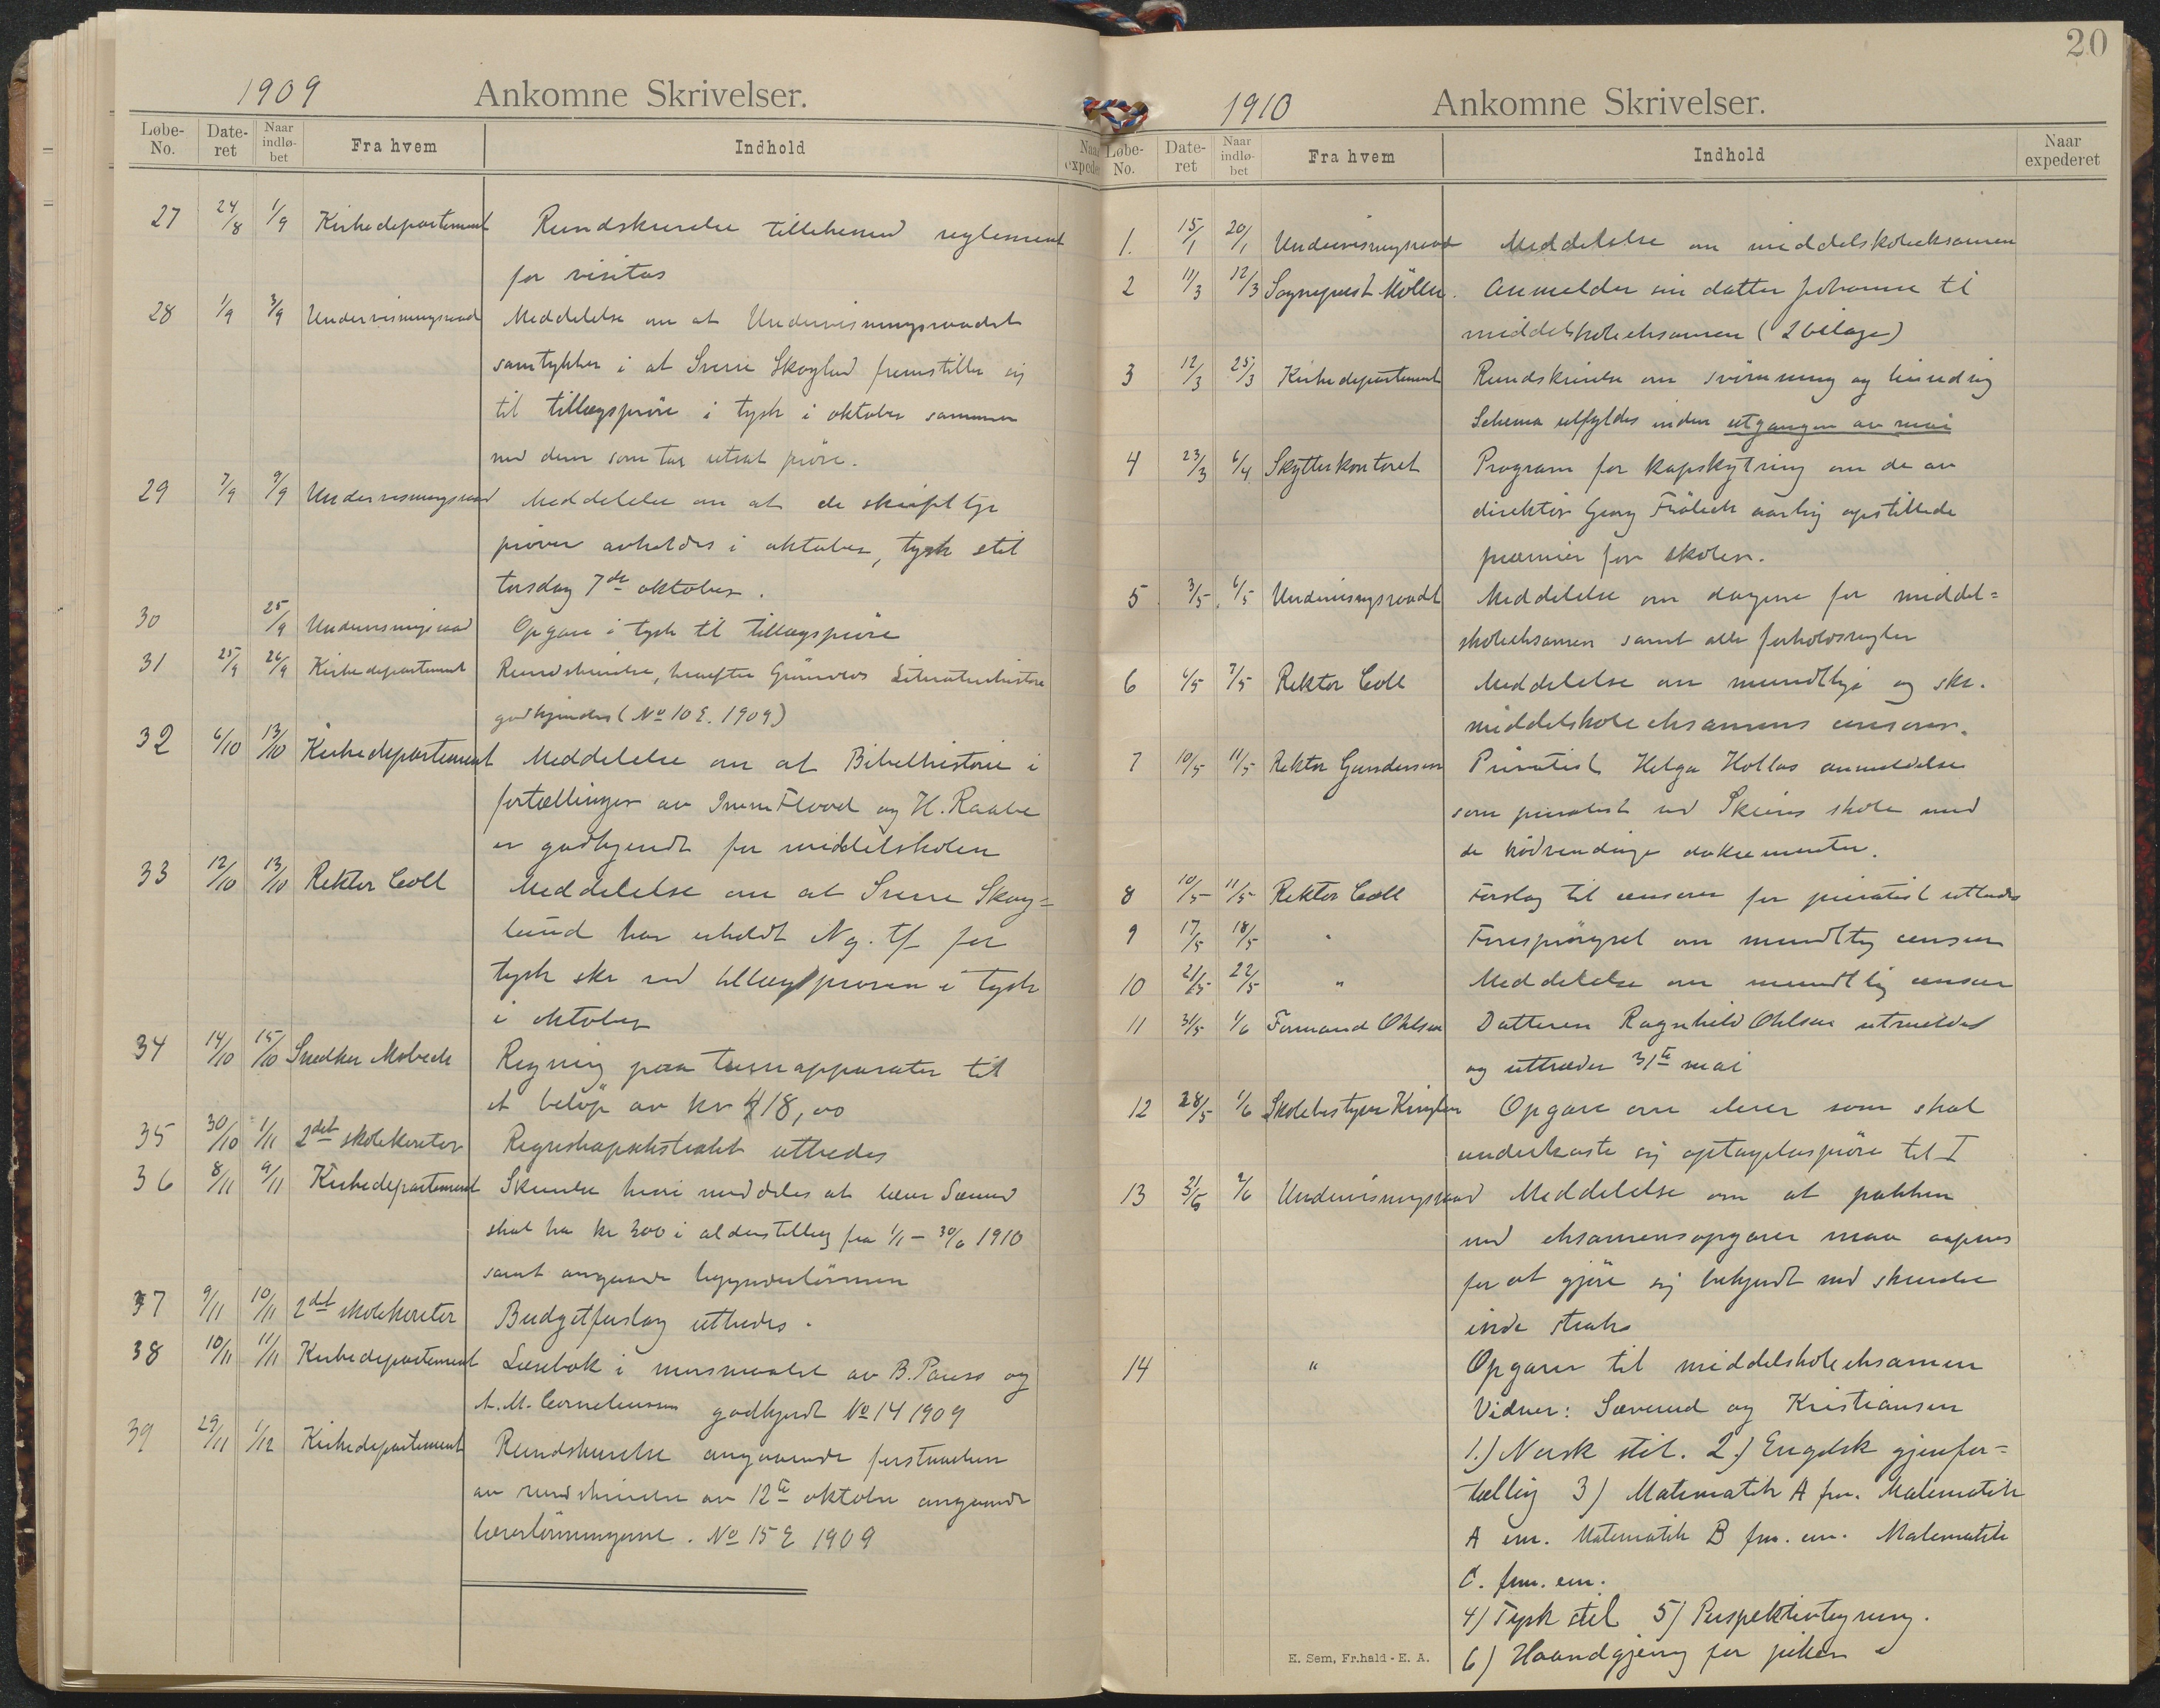 1909 Ankomne Skrivelser.
Løbe-No. Date-ret Naar indlø-bet Fra hvem Indhold Naar expede
27 24/8 1/9 Kirkedepartement Rundskrivelse tillikemed reglement
for visitas
28 1/9 3/9 Undervisningsraad Meddelelse om at Undervisningsraadet
samtykker i at Sverre Skoglund fremstiller sig
til tillægsprøve i tysk i oktober sammen
med dem som tar utsat prøve.
29 7/9 9/9 Undervisningsraad Meddelelse om at de skriftlige
prøver avholdes i oktober, tysk stil
torsdag 7de oktober.
30 25/9 Undervisningsraad Opgave i tysk til tillægsprøve
31 25/9 26/9 Kirkedepartement Rundskrivelse, hvorefter Literaturhistorie
godkjendes (No 10 E. 1909)
32 6/10 13/10 Kirkedepartement Meddelelse om at Bibelhistorie i
fortællinger av Flood og H. Raabe
er godkjendt for middelskolen
33 12/10 13/10 Rektor Coll Meddelelse om at Sverre Skog=
lund har erholdt Ng. tf for
tysk skr ved tillægsprøven i tysk
i oktober
34 14/10 15/10 Snedker Mobeck Regning paa turnapparater til
et beløp av kr 418,00
35 30/10 1/11 2det skolekontor Regnskapsekstrakt utbedes
36 8/11 9/11 Kirkedepartement Skrivelse hvori meddeles at lærer Sæverud
skal ha kr 300 i alderstillæg fra 1/1 - 30/6 1910
samt angaaende begynderlønnen
37 9/11 10/11 2det skolekontor Budgetforslag utbedes.
38 10/11 11/11 Kirkedepartement Læsebok i morsmaalet av B. Pauss og
A. M. Corneliussen godkjendt No 14 1909
39 29/11 1/12 Kirkedepartement Rundskrivelse angaaende forstaaelsen
av rundskrivelse av 12te oktober angaaende
lærerlønningerne. No 15 E 1909
20
1910 Ankomne Skrivelser.
Løbe-No. Date-ret Naar indlø-bet Fra hvem Indhold Naar expederet
1. 15/1 20/1 Undervisningsraad Meddelelse om middelskoleeksamen
2 11/3 12/3 Sogneprest Möller. Anmelder sin datter Johanne til
middelskoleeksamen (2 bilage)
3 12/3 25/3 Kirkedepartement Rundskrivelse om svømning og livredning
Schema utfyldes inden utgangen av mai
4 23/3 6/4 Skytterkontoret Program for kapskytning om de av
direktör Georg Frölich aarlig opstillede
præmier for skolen.
5 3/5 6/5 Undervisningsraadet Meddelelse om dagene for middel=
skoleeksamen samt alle forholdsregler
6 6/5 7/5 Rektor Coll Meddelelse om mundtlige og skr.
middelskoleeksamens censorer.
7 10/5 11/5 Rektor Gundersen Privatist Helga Hollas anmeldelse
som privatist ved Skiens skole med
de nödvendige dokumenter.
8 10/5 11/5 Rektor Coll Forslag til censorer for privatist utbedes
9 17/5 18/5 " Forespørgsel om mundtlig censur
10 21/5 22/5 " Meddelelse om mundtlig censur
11 31/5 1/6 Formand Ohlsen Datteren Ragnhild Ohlsen utmeldes
og uttræder 31te mai
12 28/5 1/6 Skolebestyrer Opgave over elever som skal
underkaste sig optagelsesprøve til I
13 2/6 Undervisningsraad Meddelelse om at pakken
med eksamensopgaver maa aapnes
for at gjøre sig bekjendt med skrivelse
inde straks
14 " Opgaver til middelskoleeksamen
Vidner: Sæverud og Kristiansen
1.) Norsk stil. 2.) Engelsk gjenfor=
tælling 3) Matematik A fm. Matematik
A em. Matematik B fm. em. Matematik
C. fm. em.
4) Tysk stil 5) Perspektivtegning.
6) Haandgjerning for piker
E. Sem, Fr.hald - E. A.